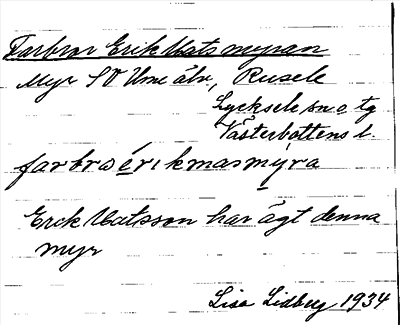 Farbror Erik Mats myran
Myr SV Ume älv, Rusele
Lycksele sn o tg
Västerbottens l.
farbro érikmasmýra
Erik Matsson har ägt denna
myr
Lisa Lidberg 1934